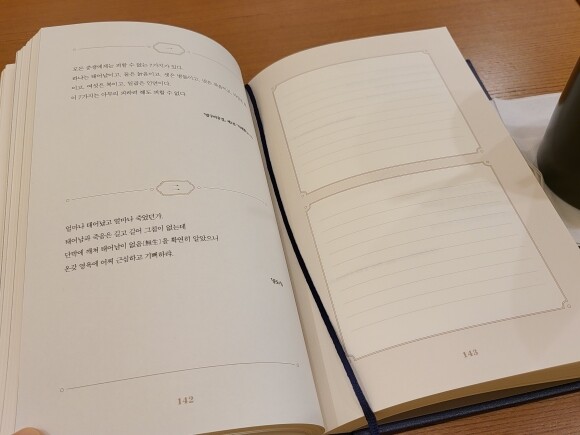 一
모든 중생에게는 피할 수 없는 7가지가 있다.
하나는 태어남이고, 둘은 늙음이고, 셋은 병듦이고, 넷은
이고, 여섯은 복이고, 일곱은 인연이다.
이 7가지는 아무리 피하려 해도 피할 수 없다.
二
얼마나 태어났고 얼마나 죽었던가.
태어남과 죽음은 길고 길어 그침이 없는데
단박에 깨쳐 태어남이 없음(無生)을 확연히 알았으니
온갖 영욕에 어찌 근심하고 기뻐하랴.
142
143